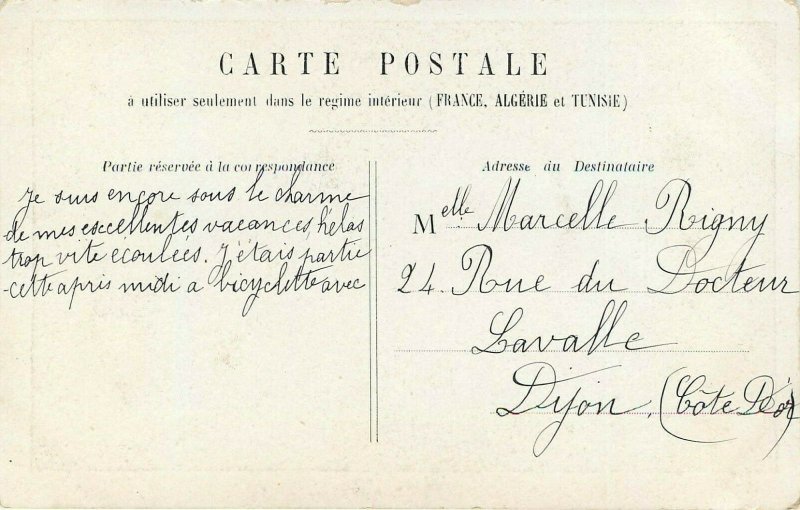 CARTE POSTALE
à utiliser seulement dans le regime intérieur (FRANCE, ALGÉRIE et TUNISIE)
Partie réservée à la correspondance
Je suis encore sous le charme
de mes escellentes vacances, hélas
trop vite ecoulées. J'étais partie
cette apris midi a bicyclette avec
Adresse du Destinataire
Melle Marcelle Rigny
24. Rue du Docteur
Lavalle
Dijon, (Côte D'or)